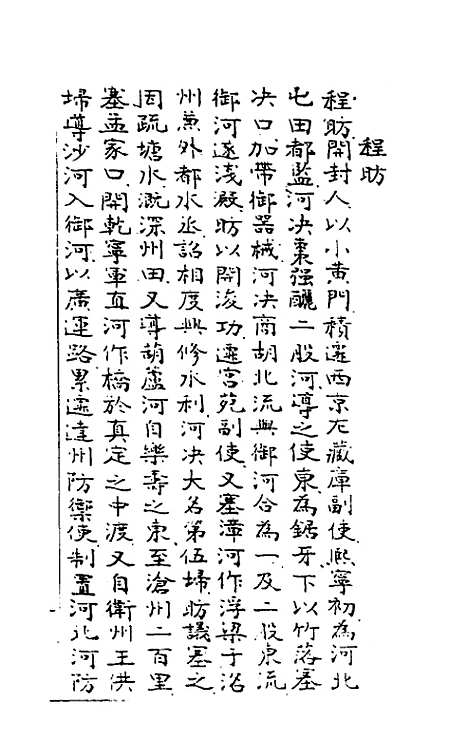 程昉
程昉開封人以小黃門積遷西京左藏庫副使熙寧初為河北
屯田都監河决棗强釃二股河導之使東為鋸牙下以竹落塞
决口加帶御器械河决商胡北流與御河合為一及二股東流
御河遂淺澱昉以開浚功遷宮苑副使又塞漳河作浮梁于洺
州兼外都水丞詔相度興修水利河决大名第伍埽昉議塞之
因疏塘水溉深州田又導葫蘆河自樂壽之東至滄州二百里
塞孟家口開乾寧軍直河作橋於真定之中渡又自衛州王供
埽導沙河入御河以廣運路累遷達州防禦使制置河北河防